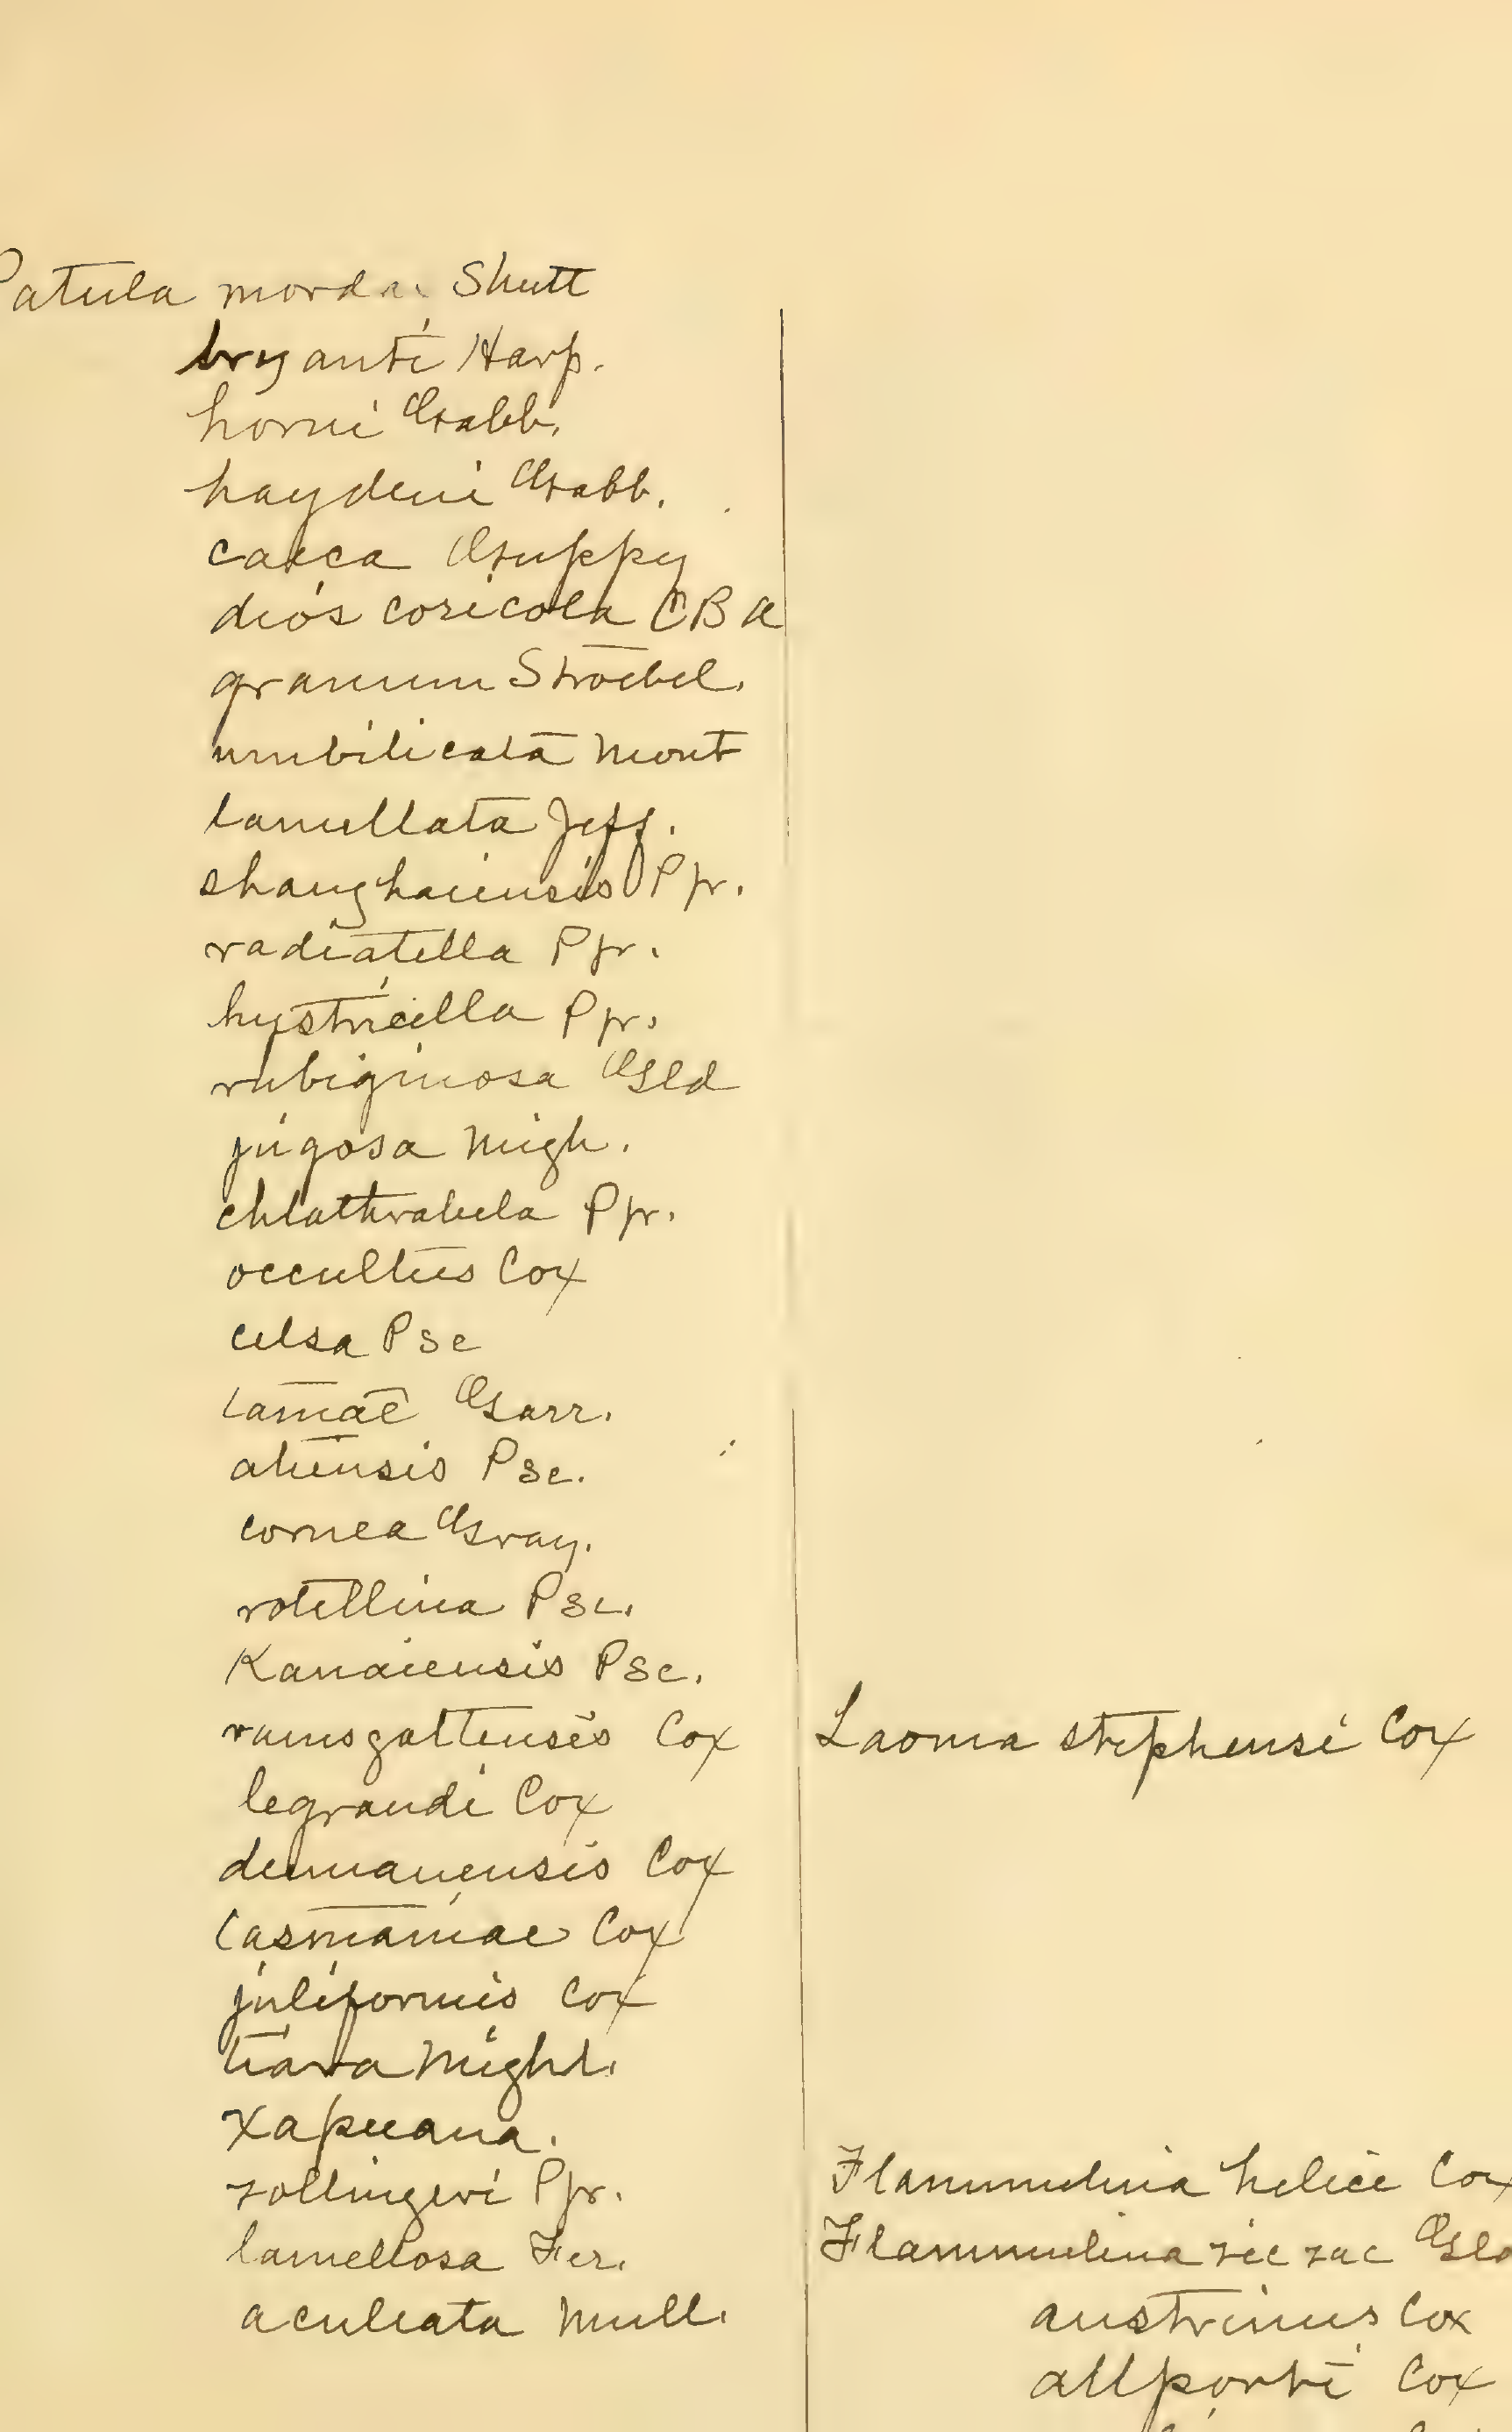 Patula morda. Shutt
bryanti Harp.
horni Gabb.
haydeni Gabb.
caeca Guppy
dios coricola CBA
granum Stroebel.
umbilicata Mont
lamellata Jeff.
shanghaiensis Pfr.
radiatella Pfr.
hystricella Pfr.
rubiginosa Gld
jugosa Migh.
chlathratula Pfr.
occultus Cox
celsa Pse
Garr.
atiensis Pse.
cornea Gray.
rotellina Pse.
Kanaiensis Pse.
ramsgattensis Cox
legrandi Cox
demanensis Cox
tasmaniae Cox
juliformis Cox
tiara Might.
Xapuana.
zollingeri Pfr.
lamellosa Fer.
aculeata Mull.
Laoma stephensi Cox
Flammulina helice Cox
Flammulina zic zac Gld
austrinus Cox
allporti Cox